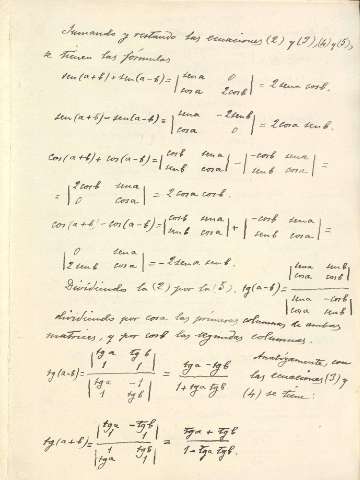 Sumando y restando las ecuaciones (2) y (3), (4) y (5),
se tienen las fórmulas
sen(a+b)+sen(a-b)=|sen a 0|
|cos a 2cos b| = 2 sen a cos b.
sen(a+b)-sen(a-b)=|sen a -2sen b|
|cos a 0| = 2cos a sen b.
cos(a+b)+cos(a-b)=|cos b sen a| - |-cos b sen a| =
|sen b cos a| |sen b cos a|
= |2cos b sen a|
|0 cos a| = 2 cos a cos b.
cos(a+b)-cos(a-b)=|cos b sen a| + |-cos b sen a| =
|sen b cos a| |sen b cos a|
|0 sen a|
|2sen b cos a| = -2sen a sen b.
Dividiendo la (2) por la (5), tg(a-b)= |sen a sen b|
|cos a cos b|
|sen a -cos b|
|sen b cos a|
dividiendo por cos a las primeras columnas de ambas
matrices, y por cos b las segundas columnas.
tg(a-b)= |tg a tg b|
|1 1|
|tg a -1|
|1 tg b| = tg a - tg b
1 + tg a tg b
Analógamente, con
las ecuaciones (3) y
(4) se tiene:
tg(a+b)= |tg a -tg b|
|1 1|
|1 tg b|
|tg a 1| = tg a + tg b
1 - tg a tg b.